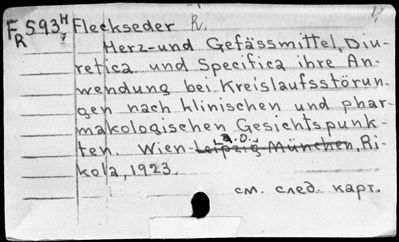 F 593 H Fleckseder R.
R 7
Herz-und Gefässmittel, Diu-
retica und Specifica ihre An-
wendung bei Kreislaufsstörun-
gen nach klinischen und phar-
makologischen Gesichtspunk-
ten. Wien-Leipzig München, Ri-
a.o.
kola, 1923.
см. след. карт.